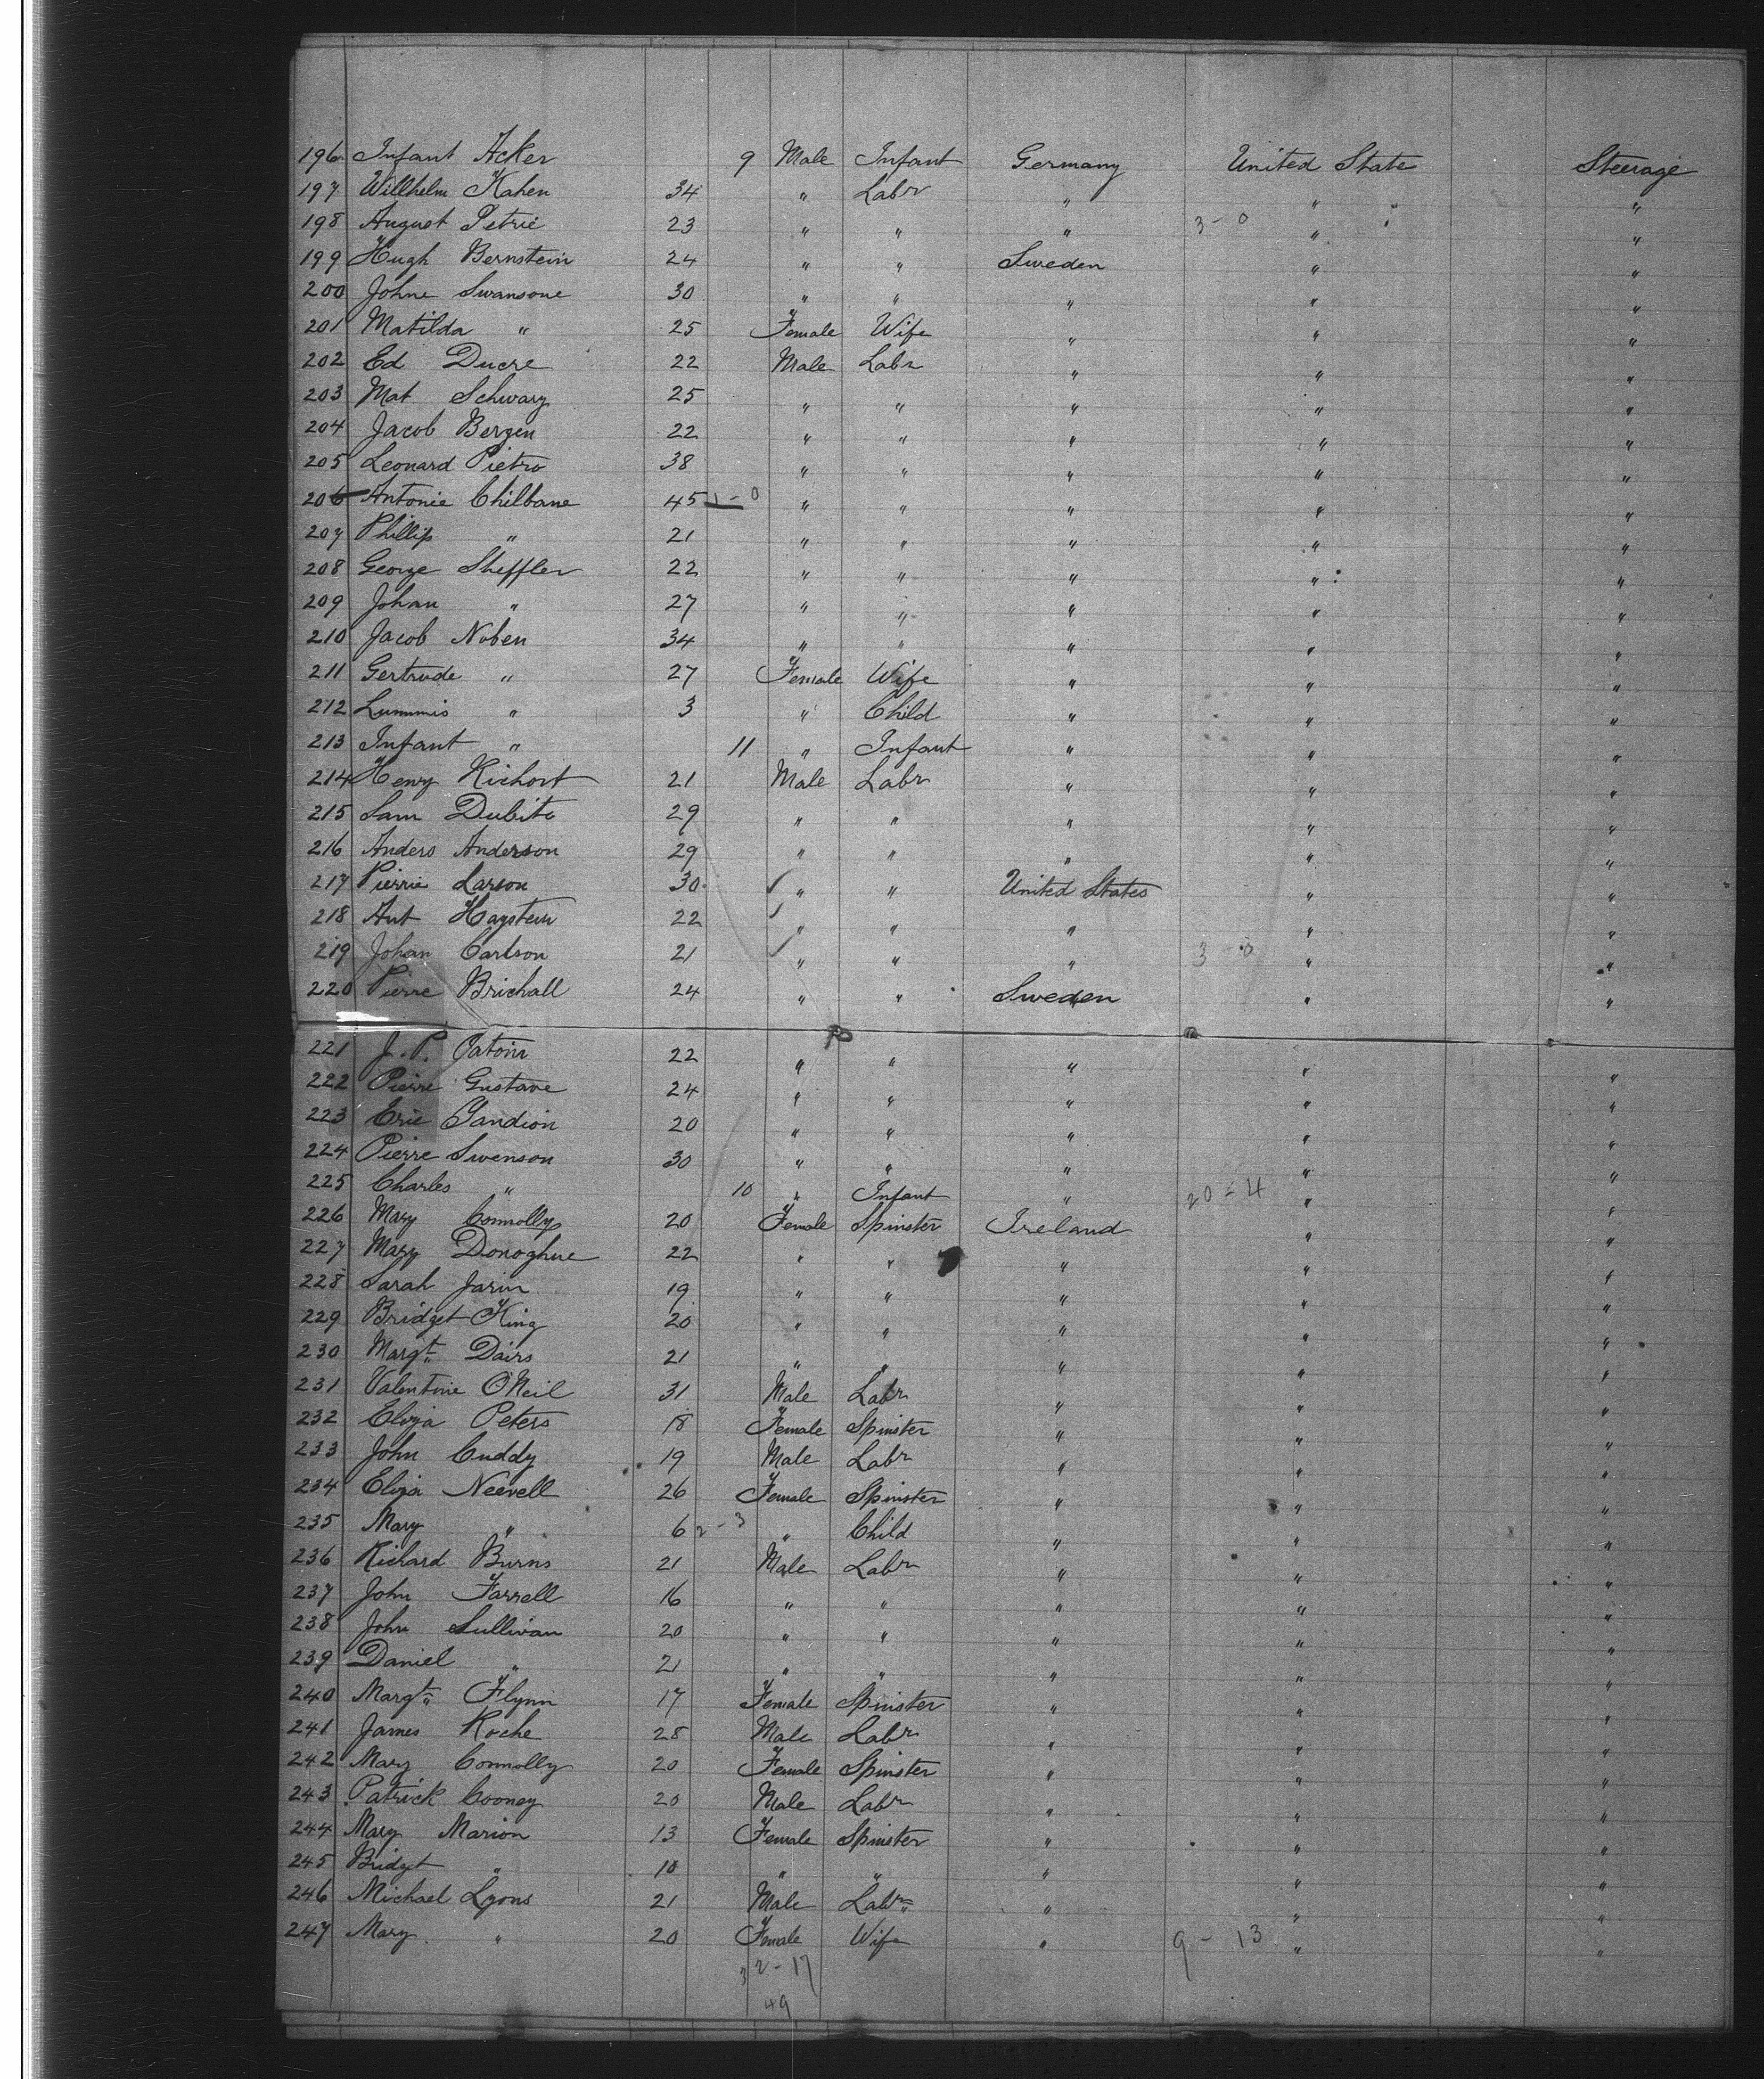 196 Infant Acker 9 Male Infant Germany United State Steerage
197 Willhelm Kahen 34 " Labr " " "
198 August Petrie 23 " " " 3-0 " "
199 Hugh Bernstein 24 " " Sweden " "
200 Johne Swansone 30 " " " " "
201 Matilda " 25 Female Wife " " "
202 Ed Ducre 22 Male Labr " " "
203 Mat Schwarz 25 " " " " "
204 Jacob Bergen 22 " " " " "
205 Leonard Pietro 38 " " " " "
206 Antonie Chilbane 45 1-0 " " " " "
207 Phillip " 21 " " " " "
208 George Sheffler 22 " " " " "
209 Johan " 27 " " " " "
210 Jacob Noben 34 " " " " "
211 Gertrude " 27 Female Wife " " "
212 Lummis " 3 " Child " " "
213 Infant " 11 " Infant " " "
214 Henry Richort 21 Male Labr " " "
215 Sam Dubito 29 " " " " "
216 Anders Anderson 29 " " " " "
217 Pierrie Larson 30 " " United States " "
218 Ant Haystein 22 " " " " "
219 Johan Carlson 21 " " " 3-0 " "
220 Pierre Brichall 24 " " Sweden " "
221 J. P. Patoin 22 " " " " "
222 Pierre Gustave 24 " " " " "
223 Eric Gandion 20 " " " " "
224 Pierre Swenson 30 " " " " "
225 Charles " 10 " Infant " 20-4 " "
226 Mary Connolly 20 Female Spinster Ireland " "
227 Mary Donoghue 22 " " " " "
228 Sarah Jarin 19 " " " " "
229 Bridget King 20 " " " " "
230 Margt Dairs 21 " " " " "
231 Valentine O'Neil 31 Male Labr " " "
232 Eliza Peters 18 Female Spinster " " "
233 John Cuddy 19 Male Labr " " "
234 Eliza Neevell 26 Female Spinster " " "
235 Mary " 6 2-3 " Child " " "
236 Richard Burns 21 Male Labr " " "
237 John Farrell 16 " " " " "
238 John Sullivan 20 " " " " "
239 Daniel " 21 " " " " "
240 Margt Flynn 17 Female Spinster " " "
241 James Roche 28 Male Labr " " "
242 Mary Connolly 20 Female Spinster " " "
243 Patrick Cooney 20 Male Labr " " "
244 Mary Marion 13 Female Spinster " " "
245 Bridgt " 10 " " " " "
246 Michael Lyons 21 Male Labr " " "
247 Mary " 20 Female Wife " 9-13 " "
32-17
49